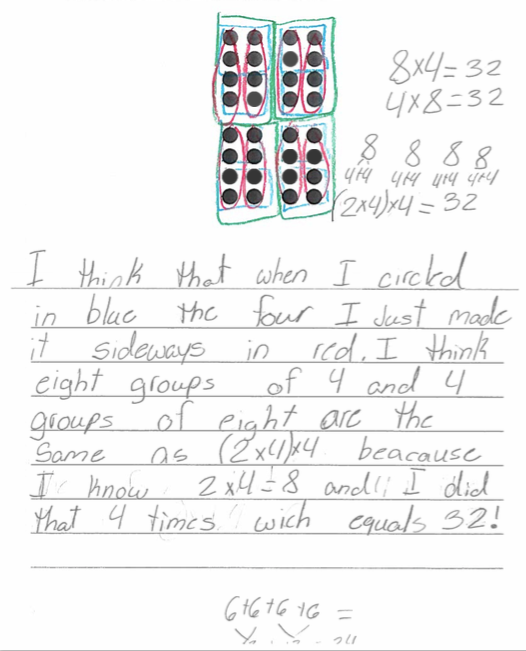 8×4=32
4×8=32
8 8 8 8
4+4 4+4 4+4 4+4
(2×4)×4=32
I think that when I circled
in blue the four I Just made
it sideways in red. I think
eight groups of 4 and 4
groups of eight are the
Same as (2×4)×4 beacause
I know 2×4=8 and I did
that 4 times wich equals 32!
6+6+6+6 =